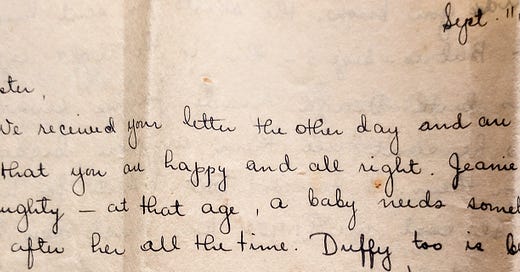 Sept. 11,
ster,
We received your letter the other day and are
that you are happy and all right. Jeanie
ughty – at that age, a baby needs some
after her all the time. Duffy too is b